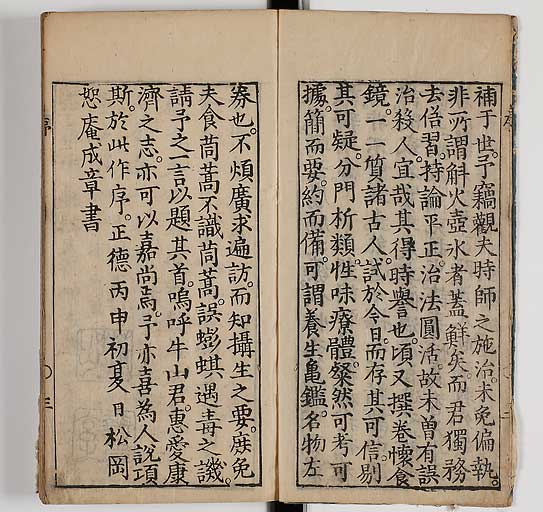 補于世。予竊觀夫時師之施治。未免偏執。
非所謂斛火壺水者蓋鮮矣。而君獨務
去俗習。持論平正。治法圓活。故未曽有誤
治殺人。宜哉其得時譽也。頃又撰卷懷食
鏡。一一質諸古人。試於今日。而存其可信。剔
其可疑。分門析類。性味療體。粲然可考可
據。簡而要。約而備。可謂養生龜鑑。名物左
券也。不煩廣求遍訪。而知攝生之要。庶免
夫食茼蒿不識茼蒿。誤蟛蜞遇毒之譏。
請予之一言以題其首。嗚呼牛山君。惠愛康
濟之志。亦可以嘉尚焉。予亦喜為人說項
斯。於此作序。正德丙申初夏日松岡
恕庵成章書
序
三